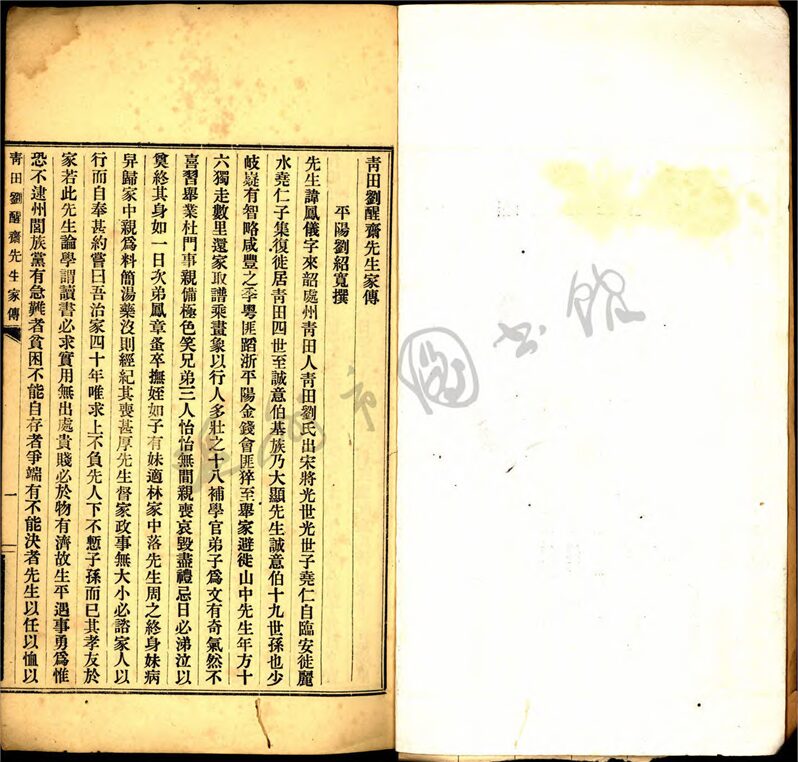 青田劉醒齋先生家傳
平陽劉紹寬撰
先生諱鳳儀字來韶處州靑田人靑田劉氏出宋將光世光世子堯仁自臨安徙麗
水堯仁子集復徙居靑田四世至誠意伯基族乃大顯先生誠意伯十九世孫也少
岐嶷有智略咸豐之季粵匪蹈浙平陽金錢會匪猝至舉家避徙山中先生年方十
六獨走數里還家取譜乘畫象以行人多壯之十八補學官弟子爲文有奇氣然不
喜習舉業杜門事親備極色笑兄弟三人怡怡無間親喪哀毀盡禮忌日必涕泣以
奠終其身如一日次弟鳳章蚤卒撫姪如子有妹適林家中落先生周之終身妹病
舁歸家中親爲料簡湯藥沒則經紀其喪甚厚先生督家政事無大小必諮家人以
行而自奉甚約嘗曰吾治家四十年唯求上不負先人下不慙子孫而已其孝友於
家若此先生論學謂讀書必求實用無出處貴賤必於物有濟故生平遇事勇爲惟
恐不逮州閭族黨有急難者貧困不能自存者爭端有不能決者先生以任以恤以
靑田劉醒齋先生家傳
一
市圖書館